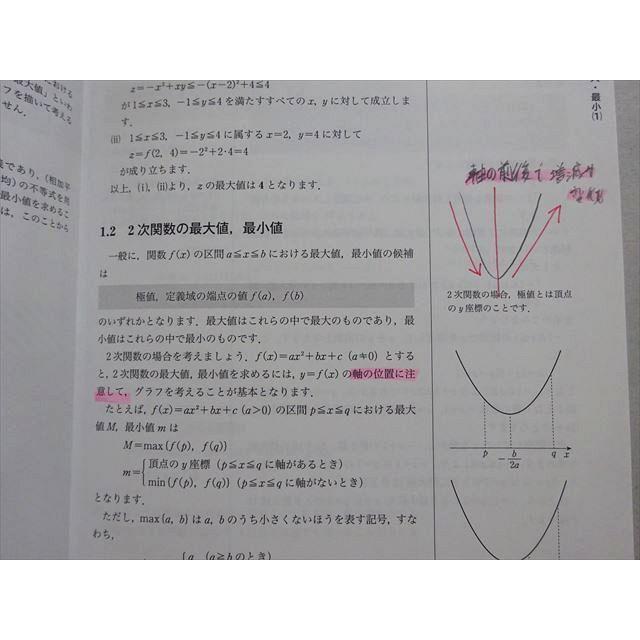 における
最大値」といわ
フを描いて考える
せん.
義であり，(相加平
均)の不等式を用
最小値を求めるこ
は，このことから
z=－x²＋xy≦－(x－2)²＋4≦4
が1≦x≦3，－1≦y≦4を満たすすべてのx, yに対して成立しま
す.
(ii) 1≦x≦3，－1≦y≦4に属するx=2，y=4に対して
z=f(2, 4)=－2²＋2・4=4
が成り立ちます.
以上，(i)，(ii)より，zの最大値は4となります.
1.2 2次関数の最大値，最小値
一般に，関数f(x)の区間a≦x≦bにおける最大値，最小値の候補
は
極値，定義域の端点の値f(a)，f(b)
のいずれかとなります．最大値はこれらの中で最大のものであり，最
小値はこれらの中で最小のものです．
2次関数の場合を考えましょう．f(x)=ax²＋bx＋c (a≠0) とする
と，2次関数の最大値，最小値を求めるには，y=f(x)の軸の位置に注
意して，グラフを考えることが基本となります．
たとえば，f(x)=ax²＋bx＋c (a>0) の区間p≦x≦qにおける最大
値M，最小値mは
M=max{f(p)，f(q)}
m={頂点のy座標 (p≦x≦qに軸があるとき)
min{f(p)，f(q)} (p≦x≦qに軸がないとき)
となります．
ただし，max{a, b}はa, bのうち小さくないほうを表す記号，すな
わち，
a (a≧bのとき)
・最小(1)
軸の前後で増減が
2次関数の場合，極値とは頂点
のy座標のことです．
p －b/2a q x